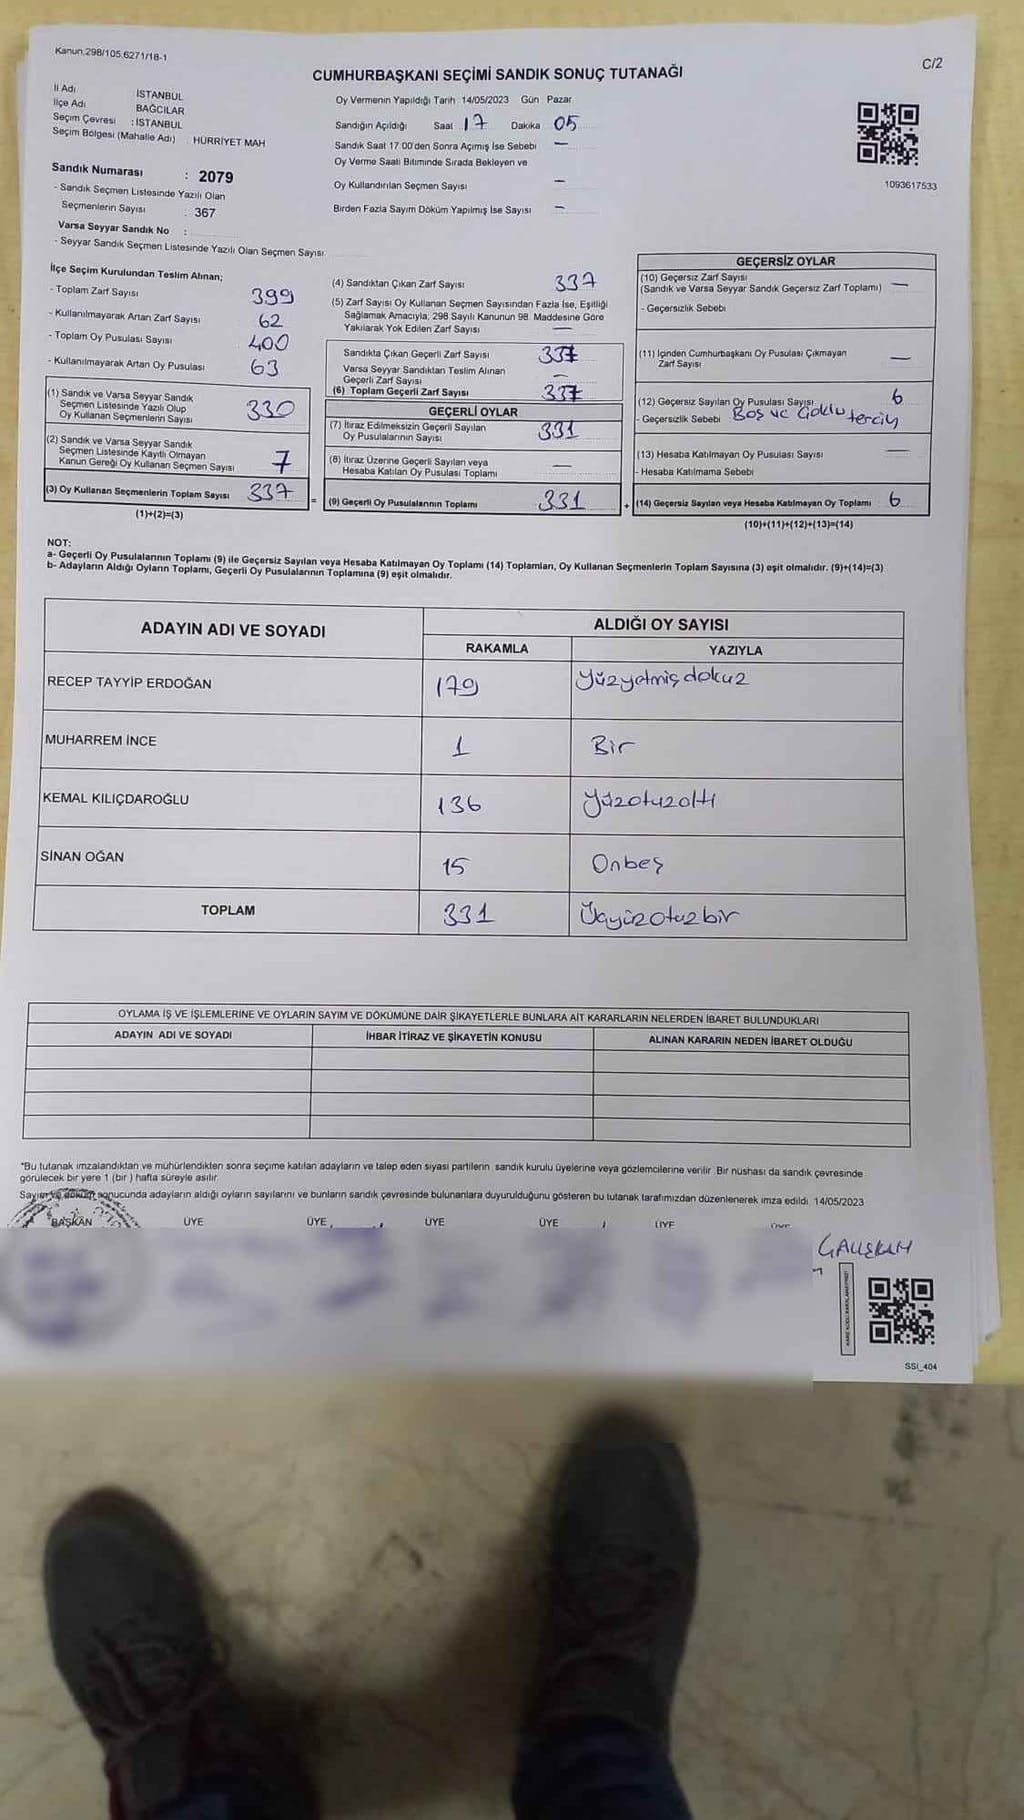 Kanun.298/105,6271/18-1
C/2
CUMHURBAŞKANI SEÇİMİ SANDIK SONUÇ TUTANAĞI
İl Adı İSTANBUL
İlçe Adı BAĞCILAR
Seçim Çevresi : İSTANBUL
Seçim Bölgesi (Mahalle Adı) HÜRRİYET MAH
Sandık Numarası : 2079
- Sandık Seçmen Listesinde Yazılı Olan
Seçmenlerin Sayısı : 367
Varsa Seyyar Sandık No :
- Seyyar Sandık Seçmen Listesinde Yazılı Olan Seçmen Sayısı
Oy Vermenin Yapıldığı Tarih 14/05/2023 Gün Pazar
Sandığın Açıldığı Saat 17 Dakika 05
Sandık Saat 17:00'den Sonra Açımış İse Sebebi —
Oy Verme Saati Bitiminde Sırada Bekleyen ve
Oy Kullandırılan Seçmen Sayısı —
Birden Fazla Sayım Döküm Yapılmış İse Sayısı —
1093617533
İlçe Seçim Kurulundan Teslim Alınan;
- Toplam Zarf Sayısı 399
- Kullanılmayarak Artan Zarf Sayısı 62
- Toplam Oy Pusulası Sayısı 400
- Kullanılmayarak Artan Oy Pusulası 63
(1) Sandık ve Varsa Seyyar Sandık
Seçmen Listesinde Yazılı Olup
Oy Kullanan Seçmenlerin Sayısı 330
(2) Sandık ve Varsa Seyyar Sandık
Seçmen Listesinde Kayıtlı Olmayan
Kanun Gereği Oy Kullanan Seçmen Sayısı 7
(3) Oy Kullanan Seçmenlerin Toplam Sayısı 337
(1)+(2)=(3)
(4) Sandıktan Çıkan Zarf Sayısı 337
(5) Zarf Sayısı Oy Kullanan Seçmen Sayısından Fazla İse, Eşitliği
Sağlamak Amacıyla; 298 Sayılı Kanunun 98. Maddesine Göre
Yakılarak Yok Edilen Zarf Sayısı —
Sandıkta Çıkan Geçerli Zarf Sayısı 337
Varsa Seyyar Sandıktan Teslim Alınan
Geçerli Zarf Sayısı —
(6) Toplam Geçerli Zarf Sayısı 337
GEÇERLİ OYLAR
(7) İtiraz Edilmeksizin Geçerli Sayılan
Oy Pusulalarının Sayısı 331
(8) İtiraz Üzerine Geçerli Sayılan veya
Hesaba Katılan Oy Pusulası Toplamı —
=
(9) Geçerli Oy Pusulalarının Toplamı 331
+
GEÇERSİZ OYLAR
(10) Geçersiz Zarf Sayısı
(Sandık ve Varsa Seyyar Sandık Geçersiz Zarf Toplamı) —
- Geçersizlik Sebebi
(11) İçinden Cumhurbaşkanı Oy Pusulası Çıkmayan
Zarf Sayısı —
(12) Geçersiz Sayılan Oy Pusulası Sayısı 6
- Geçersizlik Sebebi Boş ve Çoklu tercih
(13) Hesaba Katılmayan Oy Pusulası Sayısı —
- Hesaba Katılmama Sebebi
(14) Geçersiz Sayılan veya Hesaba Katılmayan Oy Toplamı 6
(10)+(11)+(12)+(13)=(14)
NOT:
a- Geçerli Oy Pusulalarının Toplamı (9) ile Geçersiz Sayılan veya Hesaba Katılmayan Oy Toplamı (14) Toplamları, Oy Kullanan Seçmenlerin Toplam Sayısına (3) eşit olmalıdır. (9)+(14)=(3)
b- Adayların Aldığı Oyların Toplamı, Geçerli Oy Pusulalarının Toplamına (9) eşit olmalıdır.
ADAYIN ADI VE SOYADI
ALDIĞI OY SAYISI
RAKAMLA YAZIYLA
RECEP TAYYİP ERDOĞAN 179 Yüzyetmişdokuz
MUHARREM İNCE 1 Bir
KEMAL KILIÇDAROĞLU 136 Yüzotuzaltı
SİNAN OĞAN 15 Onbeş
TOPLAM 331 Üçyüzotuzbir
OYLAMA İŞ VE İŞLEMLERİNE VE OYLARIN SAYIM VE DÖKÜMÜNE DAİR ŞİKAYETLERLE BUNLARA AİT KARARLARIN NELERDEN İBARET BULUNDUKLARI
ADAYIN ADI VE SOYADI İHBAR İTİRAZ VE ŞİKAYETİN KONUSU ALINAN KARARIN NEDEN İBARET OLDUĞU
*Bu tutanak imzalandıktan ve mühürlendikten sonra seçime katılan adayların ve talep eden siyasi partilerin sandık kurulu üyelerine veya gözlemcilerine verilir. Bir nüshası da sandık çevresinde
görülecek bir yere 1 (bir ) hafta süreyle asılır.
Sayım ve döküm sonucunda adayların aldığı oyların sayılarını ve bunların sandık çevresinde bulunanlara duyurulduğunu gösteren bu tutanak tarafımızdan düzenlenerek imza edildi. 14/05/2023
BAŞKAN ÜYE ÜYE ÜYE ÜYE ÜYE
SSİ_404